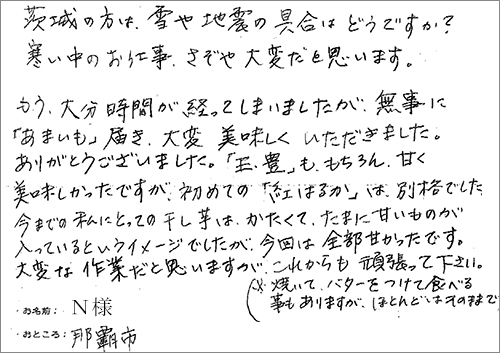 茨城の方は、雪や地震の具合はどうですか?
寒い中のお仕事、さぞや大変だと思います。
もう、大分時間が経ってしまいましたが、無事に
「あまいも」届き、大変美味しくいただきました。
ありがとうございました。「玉豊」も、もちろん、甘く
美味しかったですが、初めての「紅はるか」は、別格でした
今までの私にとっての干し芋は、かたくて、たまに甘いものが
入っているというイメージでしたが、今回は全部甘かったです。
大変な作業だと思いますが、これからも頑張って下さい。
(※焼いて、バターをつけて食べる
事もありますが、ほとんどはそのままで
お名前: N様
おところ: 那覇市